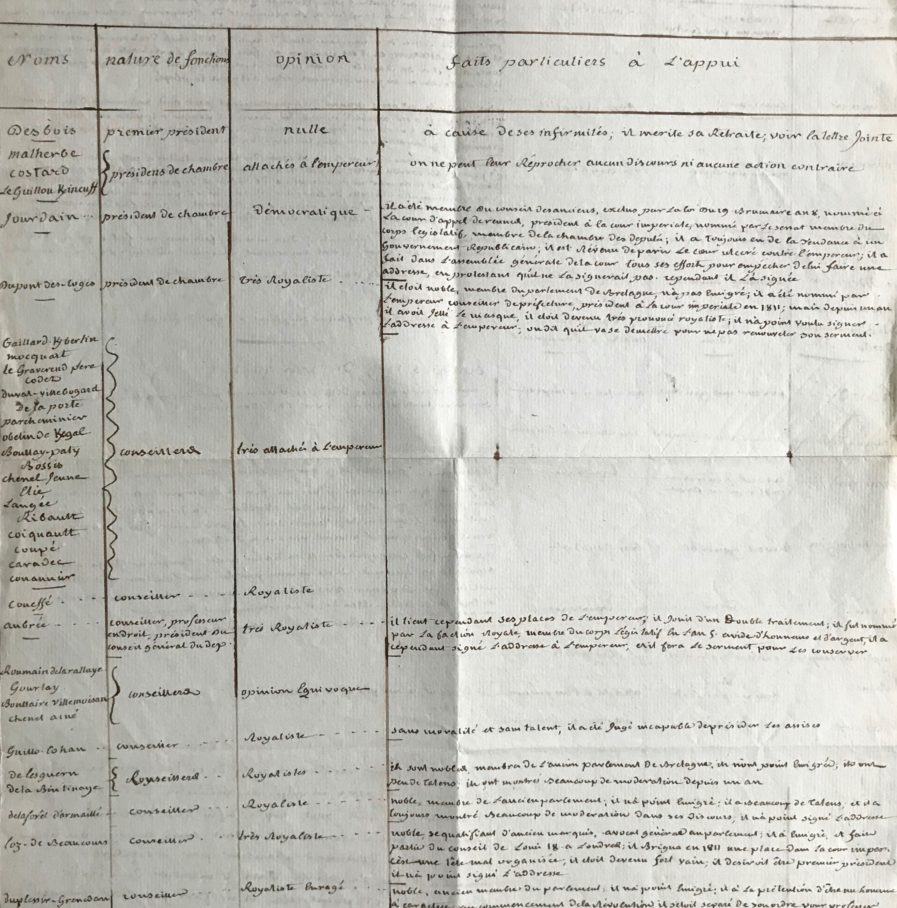 Noms nature de fonctions opinion faits particuliers à L'appui
Desbois premier président nulle à cause de ses infirmités; il merite sa Retraite; voir la lettre Jointe
malherbe
costard présidens de chambre attachés à l'empereur on ne peut leur Reprocher aucun discours ni aucune action contraire
Le Guillou Kincuff
Jourdain président de chambre démocratique il a été membre du conseil des anciens, exclus par La loi du 19 Brumaire an 8, nommé ci
La cour d'appel de rennes, président à la cour imperiale, nommé par Le senat membre du
corps legislatif, membre de la chambre des deputés; il a toujours eu de la tendance à un
Gouvernement Republicain; il est Revenu de paris Le cœur ulceré contre l'empereur; il a
fait dans L'assemblée générale de la cour tous ses efforts pour empecher de lui faire une
addresse, en protestant qu'il ne La signerait pas. cependant il L'a signée
Dupont des-Loges président de chambre très Royaliste il etoit noble, membre du parlement de Bretagne, n'a pas emigré; il a été nommé par
L'empereur conseiller de préfecture, président à La cour imperiale en 1811; mais depuis un an
il avoit Jetté Le masque, il etoit devenu très prononcé royaliste; il n'a point voulu signer
L'addresse à L'empereur, on dit qu'il va se demettre pour ne pas renouveler son serment.
Gaillard-Kbertin
mocquart
le Graverend père
codet
duval-villebogard
de la porte
parcheminier
obelin de Kgal
Boullay-paty conseillers très attachés à L'empereur
Bossis
chenel Jeune
Elie
Langée
Ribault
coiquault
coupé
caradec
couannier
coueffé conseiller Royaliste
aubrée conseiller, professeur très Royaliste il tient cependant ses places de L'empereur; il Jouit d'un Double traitement; il fut nommé
en droit, président du par La faction Royale, membre du corps Législatif En L'an 5. avide d'honneurs et d'argent, il a
conseil général du dep. cependant signé L'addresse à L'empereur, et il fera Le serment pour Les conserver
Roumain de la rallaye
Gourlay conseillers opinion Equivoque
Bouttaire villemoisan
chenel ainé
Guillo-Lohan conseiller Royaliste sans moralité et sans talent, il a été Jugé incapable de présider Les assises
de Lesguern conseillers Royalistes ils sont nobles, membres de L'ancien parlement de Bretagne, ils n'ont point Emigré; ils ont
de la Bintinaye peu de talens; ils ont montré Beaucoup de moderation depuis un an
delaforet d'armaillé conseiller Royaliste noble, membre de L'ancien parlement; il n'a point Emigré; il a Beaucoup de talens, et il a
toujours montré Beaucoup de moderation dans ses discours, il n'a point signé L'addresse
Loz-de Beaucours conseiller très Royaliste noble, se qualifiant d'ancien marquis, avocat général au parlement; il a Emigré, et fait
partie du conseil de Louis 18 à Londres; il Brigua en 1811 une place dans La cour imper.
c'est une tête mal organisée; il etoit devenu fort vain; il desiroit être premier président
il n'a point signé L'addresse
duplessix-Grenedan conseiller Royaliste Enragé noble, ancien membre du parlement, il n'a point Emigré; il a La prétention d'être un homme
à caractère; au commencement de la Révolution il s'etoit separé de son ordre pour